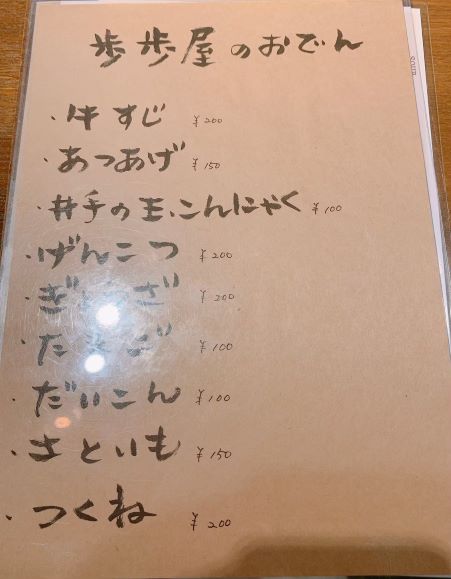 歩歩屋のおでん
・牛すじ ¥200
・あつあげ ¥150
・井手の玉こんにゃく ¥100
・げんこつ ¥200
・ぎょうざ ¥200
・たまご ¥100
・だいこん ¥100
・さといも ¥150
・つくね ¥200